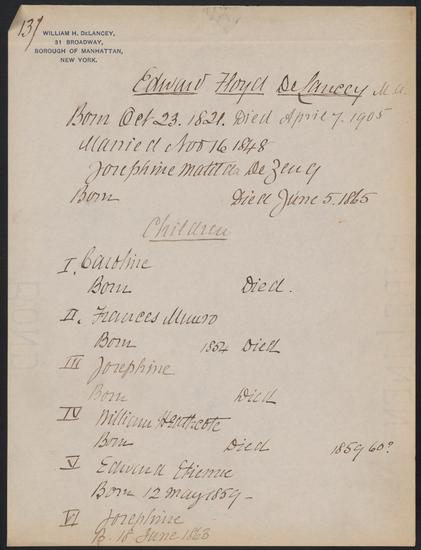 137
WILLIAM H. DELANCEY,
31 BROADWAY,
BOROUGH OF MANHATTAN,
NEW YORK.
Edward Floyd DeLancey M.A.
Born Oct 23. 1821. Died April 7. 1905
Married Nov 16 1848
Josephine Matilda DeZeng
Born Died June 5. 1865
Children
I. Caroline
Born Died.
II. Frances Munro
Born 1854 Died
III Josephine
Born Died
IV William Heathcote
Born Died 1859 60?
V Edward Etienne
Born 12 May 1859 -
VI Josephine
B. 18 June 1863